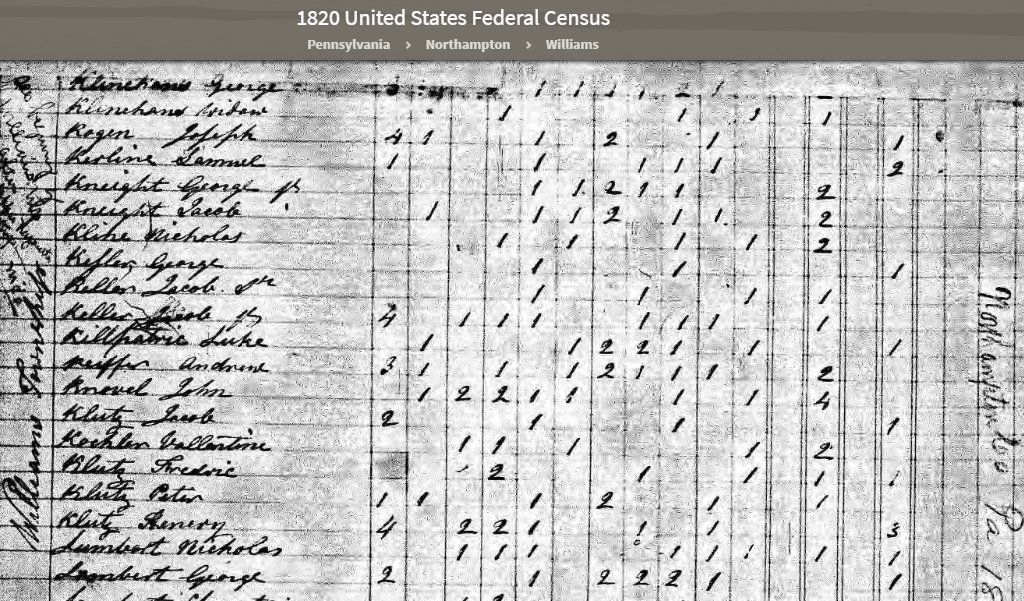 1820 United States Federal Census
Pennsylvania > Northampton > Williams
Klinehans George 1 1 1 1 2 1
Klinehans 1 1 1 1
Kogen Joseph 4 1 1 2 1 1
Kerline Samuel 1 1 1 1 1 2
Kneight George Jr 1 1 2 1 1 2
Kneight Jacob 1 1 1 2 1 1 2
Kline Nicholas 1 1 1 1 2
Kefler George 1 1 1
Keller Jacob Sr 1 1 1 1
Keller Jacob Jr 4 1 1 1 1 1 1 1
Killpatric Luke 1 1 2 2 1 1 1
Keiffer Andrew 3 1 1 1 2 1 1 1 2
Knovel John 1 2 2 1 1 1 1 4
Klutz Jacob 2 1 1 1
Kochler Vallantine 1 1 1 1 2
Klutz Fredric 2 1 1 1 1
Klutz Peter 1 1 1 2 1 1
Klutz Henery 4 2 2 1 1 1 3
Lumbert Nicholas 1 1 1 1 1 1 1 1
Lambert George 2 1 2 2 2 1 1
Williams Township
Northampton Co Pa 18